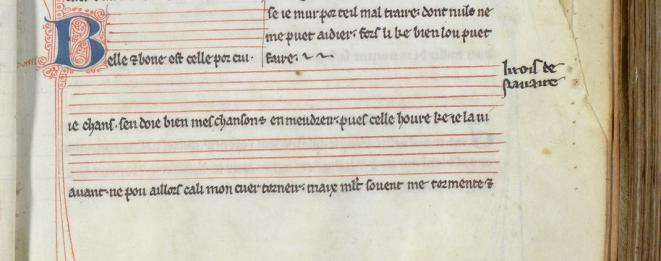 se ie mur por ceil mal traire. dont nuls ne
me puet aidier. fors li ke bien lou puet
faire.
Belle & bone est celle por cui.
li rois de
navaire
ie chans. sen doie bien mes chansons en meudreir. pues celle houre ke ie la vi
avant. ne pou aillors cali mon cuer torneir. maix mlt sovent me tormente &